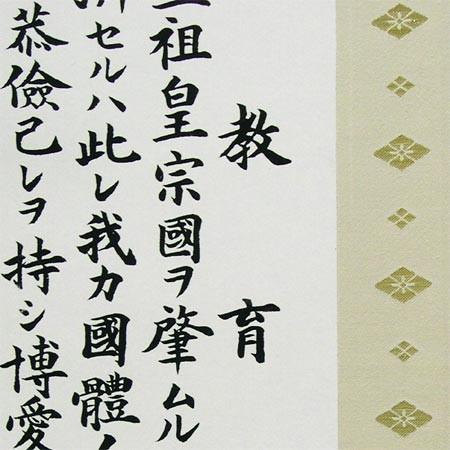 教育
祖皇宗國ヲ肇ムル
セルハ此レ我カ國體ノ
恭儉己レヲ持シ博愛